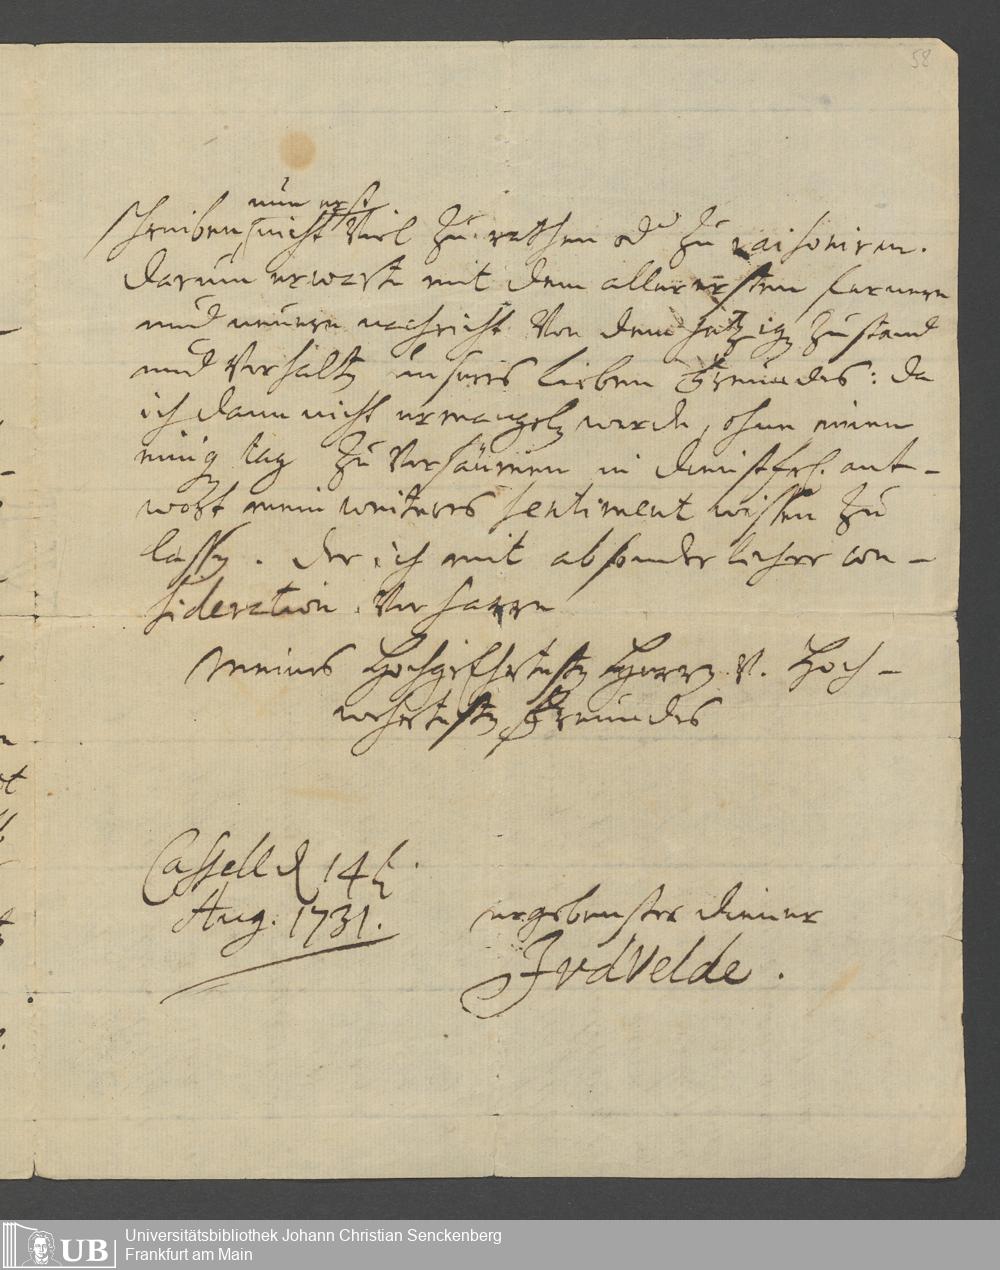 58
nun erst
schreiben, nicht viel zu rathen od. zu raisoniren.
darum erwarte mit dem allerersten fernere
und neuere nachricht von dem jetzigen zustand
und verhalten unseres lieben Freundes: da
ich dann nicht ermangeln werde, ohne einen
einig tag zu versäumen in dienstfrl. ant-
wort mein weiteres sentiment wissen zu
lassen. der ich mit absonderlicher con-
sideration verharre
Meines Hochgeehrtesten Herrn v. Hoch-
wehrtesten Freundes
Cassell d 14t.
Aug. 1731.
ergebenster diener
JvdVelde.
UB
Universitätsbibliothek Johann Christian Senckenberg
Frankfurt am Main